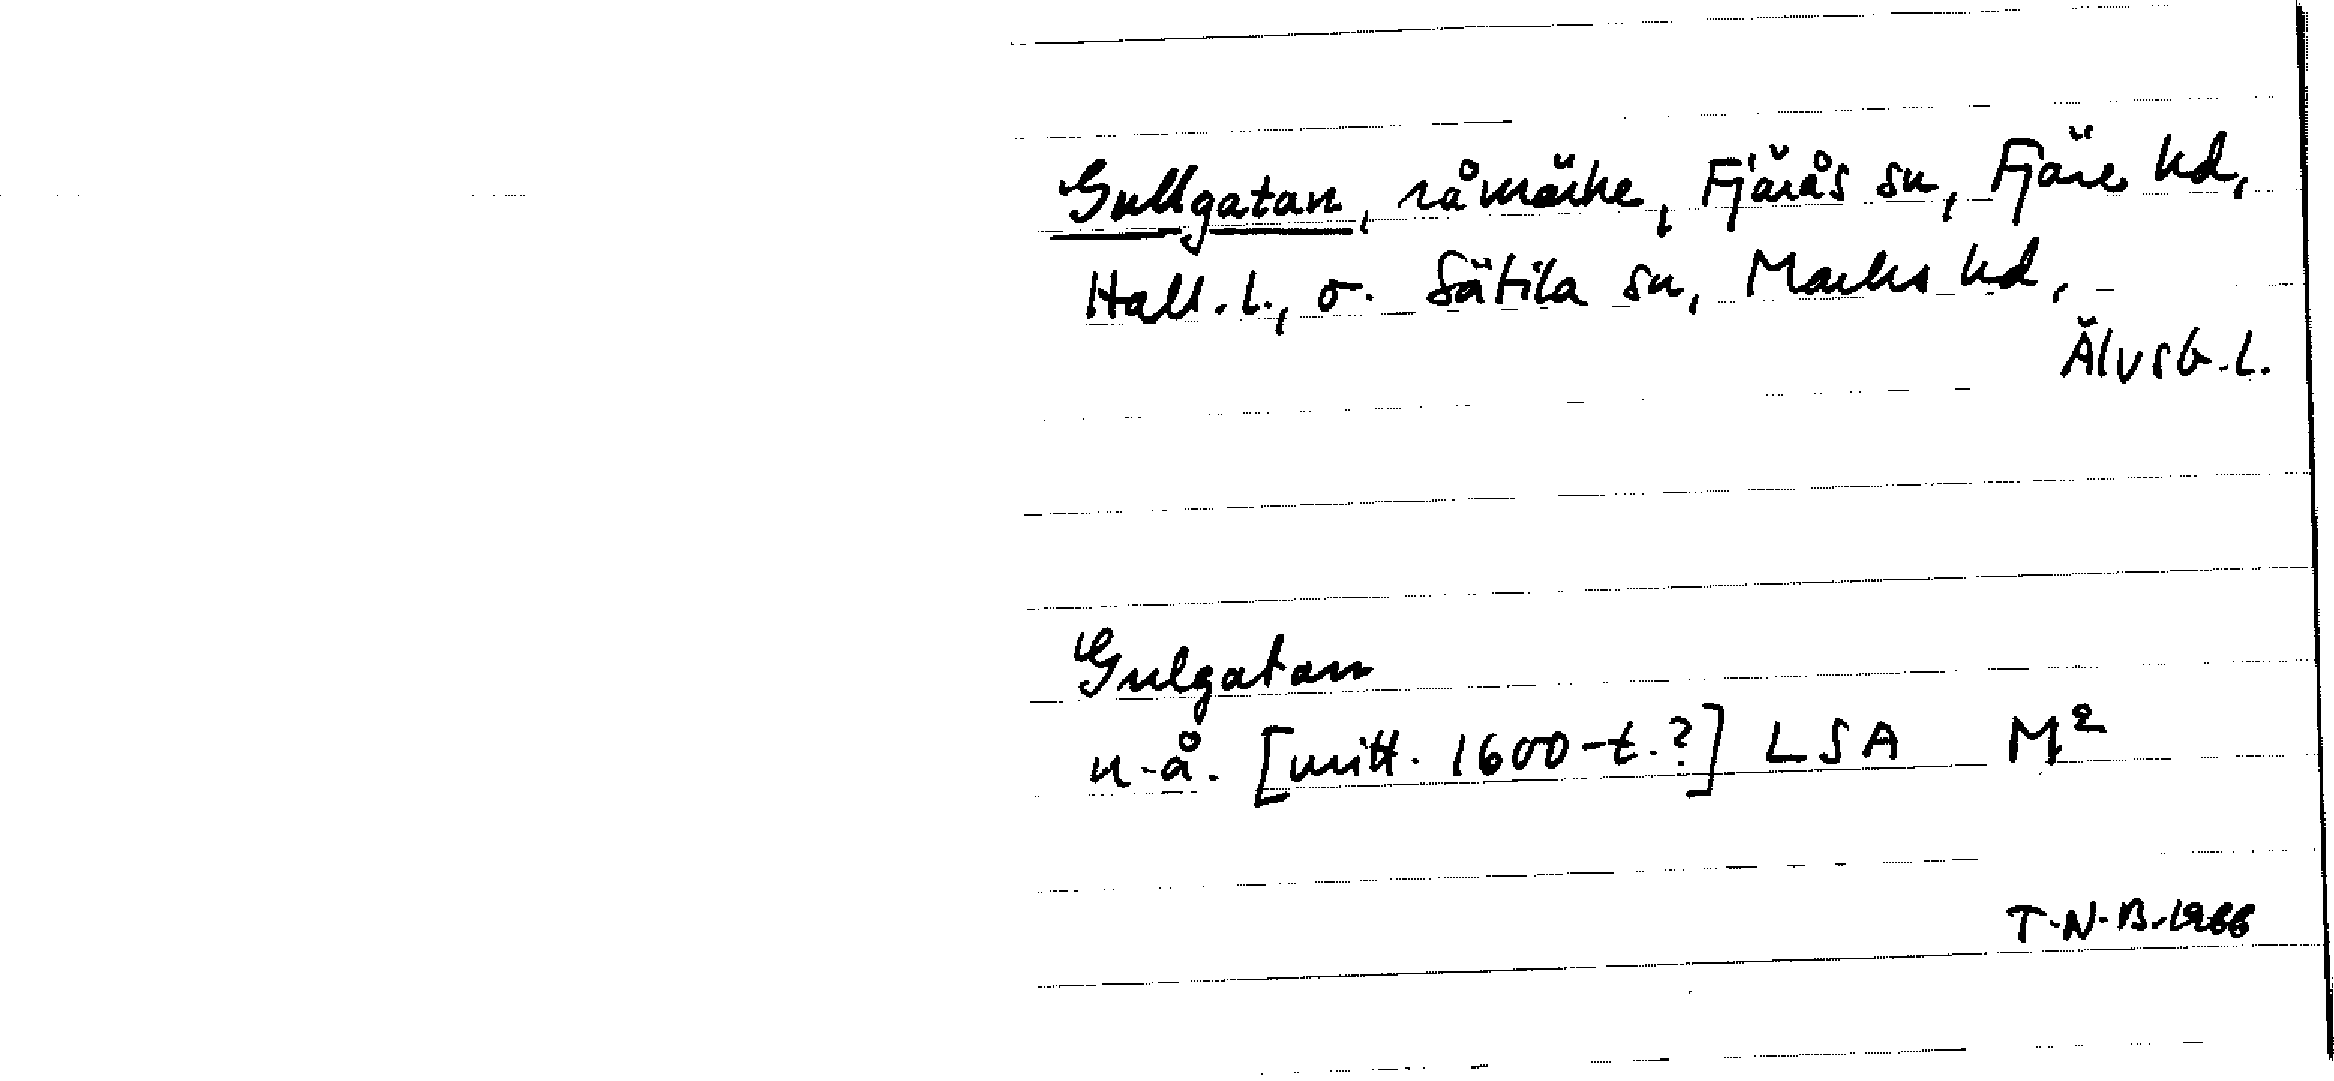 Gullgatan, råmärke, Fjärås sn, Fjäre hd,
Hall. l., o. Sätila sn, Marks hd,
Älvsb. l.
Gulgatan
u.å. [mitt. 1600-t.?] LSA M²
T.N.B. 1966